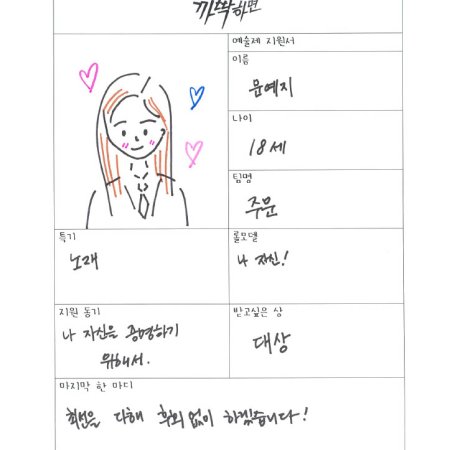 까딱하면
예술제 지원서
이름
문예지
나이
18세
팀명
주문
특기
노래
롤모델
나 자신!
지원 동기
나 자신을 증명하기
위해서.
받고싶은 상
대상
마지막 한 마디
최선을 다해 후회 없이 하겠습니다!